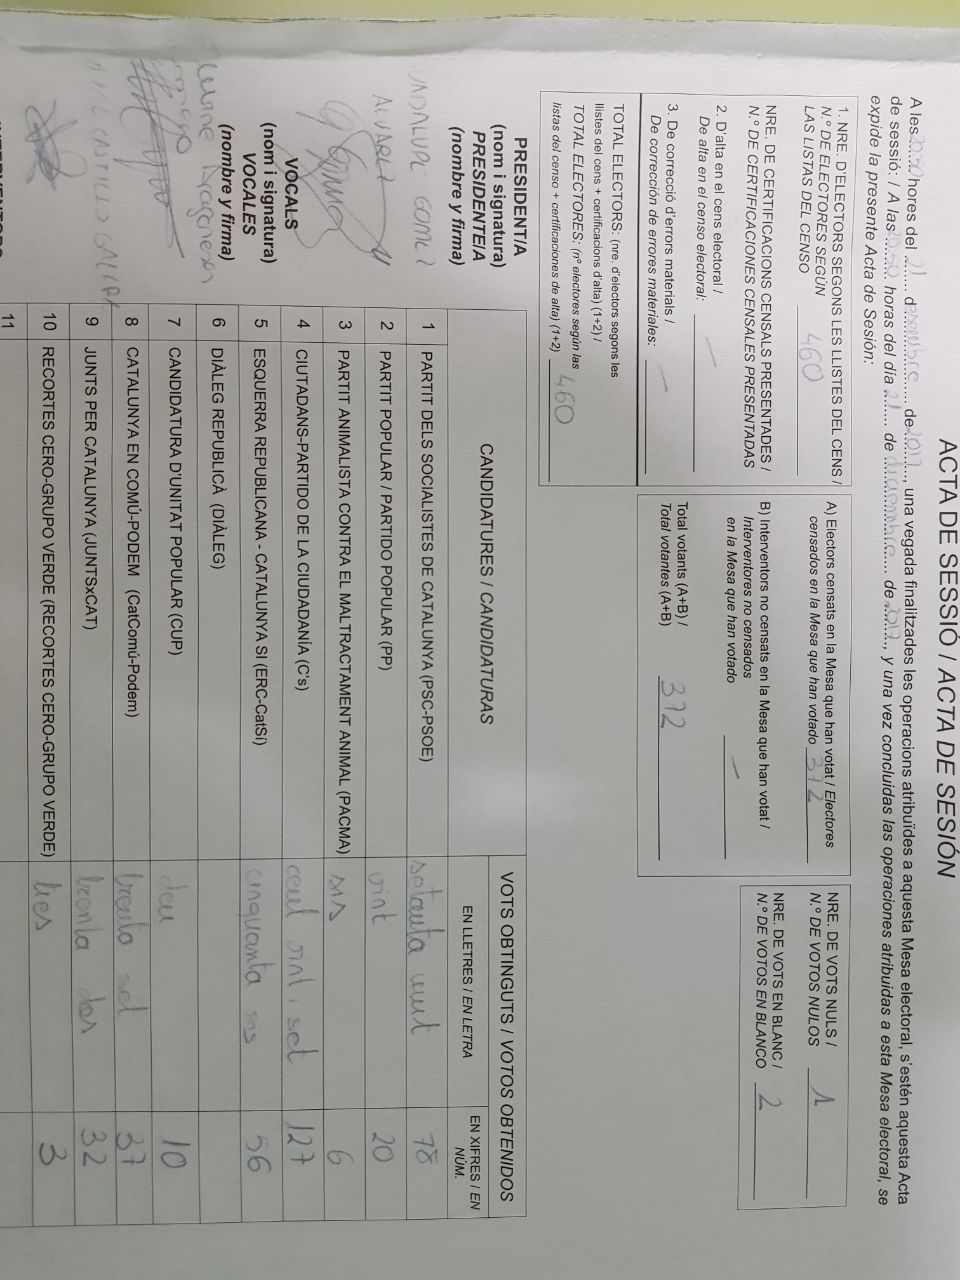 ACTA DE SESSIÓ / ACTA DE SESIÓN
A les 20:50 hores del 21 de desembre de 2017, una vegada finalitzades les operacions atribuïdes a aquesta Mesa electoral, s'estén aquesta Acta
de sessió: / A las 20:50 horas del día 21 de diciembre de 2017, y una vez concluidas las operaciones atribuidas a esta Mesa electoral, se
expide la presente Acta de Sesión:
1. NRE. D'ELECTORS SEGONS LES LLISTES DEL CENS /
N.º DE ELECTORES SEGÚN
LAS LISTAS DEL CENSO 460
NRE. DE CERTIFICACIONS CENSALS PRESENTADES /
N.º DE CERTIFICACIONES CENSALES PRESENTADAS
2. D'alta en el cens electoral /
De alta en el censo electoral: —
3. De correcció d'errors materials /
De corrección de errores materiales: —
TOTAL ELECTORS: (nre. d'electors segons les
llistes del cens + certificacions d'alta) (1+2) /
TOTAL ELECTORES: (nº electores según las
listas del censo + certificaciones de alta) (1+2) 460
A) Electors censats en la Mesa que han votat / Electores
censados en la Mesa que han votado 372
B) Interventors no censats en la Mesa que han votat /
Interventores no censados
en la Mesa que han votado —
Total votants (A+B) /
Total votantes (A+B) 372
NRE. DE VOTS NULS /
N.º DE VOTOS NULOS 1
NRE. DE VOTS EN BLANC /
N.º DE VOTOS EN BLANCO 2
PRESIDENT/A
(nom i signatura)
PRESIDENTE/A
(nombre y firma)
GOMEZ
ALVAREZ
VOCALS
(nom i signatura)
VOCALES
(nombre y firma)
CASTILLO
CANDIDATURES / CANDIDATURAS
VOTS OBTINGUTS / VOTOS OBTENIDOS
EN LLETRES / EN LETRA
EN XIFRES / EN NÚM.
1 PARTIT DELS SOCIALISTES DE CATALUNYA (PSC-PSOE) setanta vuit 78
2 PARTIT POPULAR / PARTIDO POPULAR (PP) vint 20
3 PARTIT ANIMALISTA CONTRA EL MALTRACTAMENT ANIMAL (PACMA) sis 6
4 CIUTADANS-PARTIDO DE LA CIUDADANÍA (C's) cent vint i set 127
5 ESQUERRA REPUBLICANA - CATALUNYA SI (ERC-CatSí) cinquanta sis 56
6 DIÀLEG REPUBLICÀ (DIÀLEG)
7 CANDIDATURA D'UNITAT POPULAR (CUP) deu 10
8 CATALUNYA EN COMÚ-PODEM (CatComú-Podem) trenta set 37
9 JUNTS PER CATALUNYA (JUNTSxCAT) trenta dos 32
10 RECORTES CERO-GRUPO VERDE (RECORTES CERO-GRUPO VERDE) tres 3
11